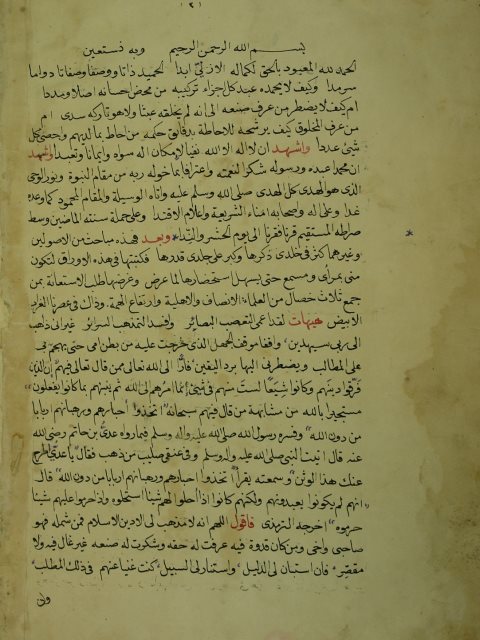 (٢)
بسم الله الرحمن الرحيم وبه نستعين
الحمد لله المعبود بالحق لكماله الازلي ابدا الحميد ذاتا ووصفا وصفاتا دواما
سرمدا وكيف لا يحمده عبد كل اجزاء تركيبه من محض احسانه اصلا ومددا
ام كيف لا يضطر من عرف صنعه الى انه لم يخلقه عبثا ولا هو تاركه سدى ام
من عرف المخلوق كيف يرشحه للاحاطة بدقائق حكمه من احاط بما لديهم واحصى كل
شيئ عددا واشهد ان لا اله الا الله نفيا لامكان اله سواه وايمانا وتعبدا واشهد
ان محمدا عبده ورسوله شكرا لنعمته واعترافا بما خوله ربه من مقام النبوة وبنور الوحي
الذي هو الهدى كل الهدى صلى الله وسلم عليه وآتاه الوسيلة والمقام المحمود كما وعده
غدا وعلى اله وصحابه امناء الشريعة واعلام الاقتدا وعلى حملة سنته الماضين وسط
صراطه المستقيم قرنا فقرنا الى يوم الحشر والنداء وبعد فهذه مباحث من الاصولين
وغيرهما كثر في خلدي ذكرها وكبر على جلدي قدرها فكتبتها في هذه الاوراق لتكون
مني بمرأى ومسمع حتى يسهل استحضارها لما عرض وغرضها طلب الاستعانة بمن
جمع ثلاث خصال من العلماء الانصاف والاهلية وارتفاع الهمة وذاك في عصرنا الغراب
الابيض هيهات لقد اعمى التعصب البصائر وافسد التمذهب السرائر غير اني ذاهب
الى ربي سيهدين وافقا موقف الجهل الذي خرجت عليه من بطن امي حتى يهجم بي
على المطالب ويضطرني اليها برد اليقين فارًّا الى الله تعالى ممن قال تعالى فيهم ان الذين
فرقوا دينهم وكانوا شيعا لست منهم في شيئ انما امرهم الى الله ثم ينبئهم بما كانوا يفعلون
مستجيرا بالله من مشابهة من قال فيهم سبحانه اتخذوا احبارهم ورهبانهم اربابا
من دون الله وفسره رسول الله صلى الله عليه وآله وسلم فيما رواه عدي بن حاتم رضي الله
عنه قال اتيت النبي صلى الله عليه وآله وسلم وفي عنقي صليب من ذهب فقال يا عدي اطرح
عنك هذا الوثن وسمعته يقرأ اتخذوا احبارهم ورهبانهم اربابا من دون الله قال
انهم لم يكونوا يعبدونهم ولكنهم كانوا اذا احلوا لهم شيئا استحلوه واذا حرموا عليهم شيئا
حرموه اخرجه الترمذي فاقول اللهم انه لا مذهب لي الا دين الاسلام فمن شمله فهو
صاحبي واخي ومن كان قدوة فيه عرفت له حقه وشكرت له صنعه غير غال فيه ولا
مقصر فان استبان لي الدليل واستنار لي السبيل كنت غنيا عنهم في ذلك المطلب
وان